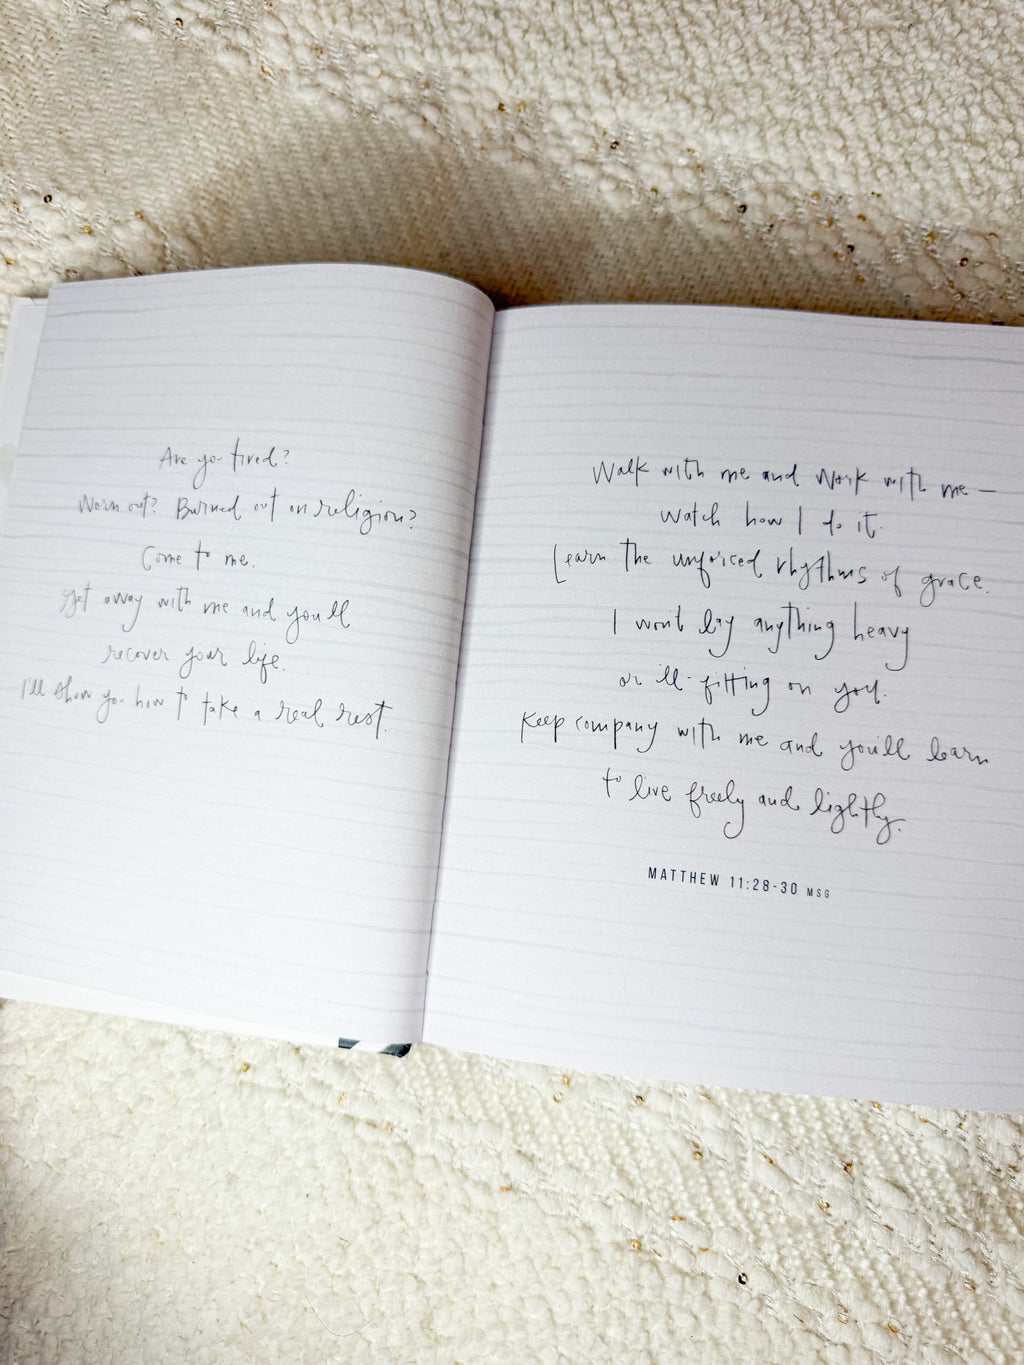 Are you tired?
Worn out? Burned out on religion?
Come to me.
Get away with me and you'll
recover your life.
I'll show you how to take a real rest.
Walk with me and work with me—
watch how I do it.
Learn the unforced rhythms of grace.
I won't lay anything heavy
or ill-fitting on you.
Keep company with me and you'll learn
to live freely and lightly.
MATTHEW 11:28-30 MSG